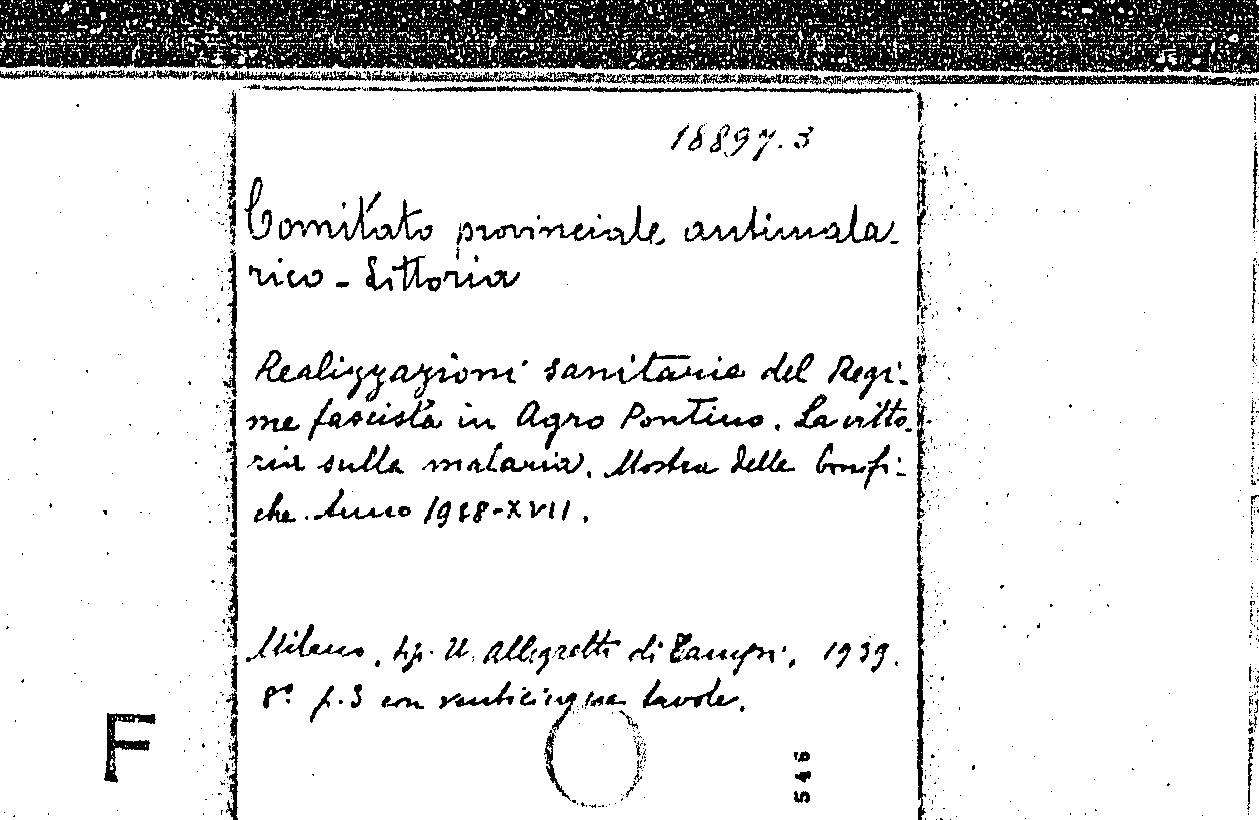 18897.3
Comitato provinciale antimala-
rico - Littoria
Realizzazioni sanitarie del Regi-
me fascista in Agro Pontino. La vitto-
ria sulla malaria. Mostra delle bonifi-
che. Anno 1938-XVII.
Milano, tip. U. Allegretti di Campi, 1939.
8° p.3 con venticinque tavole.
F
546